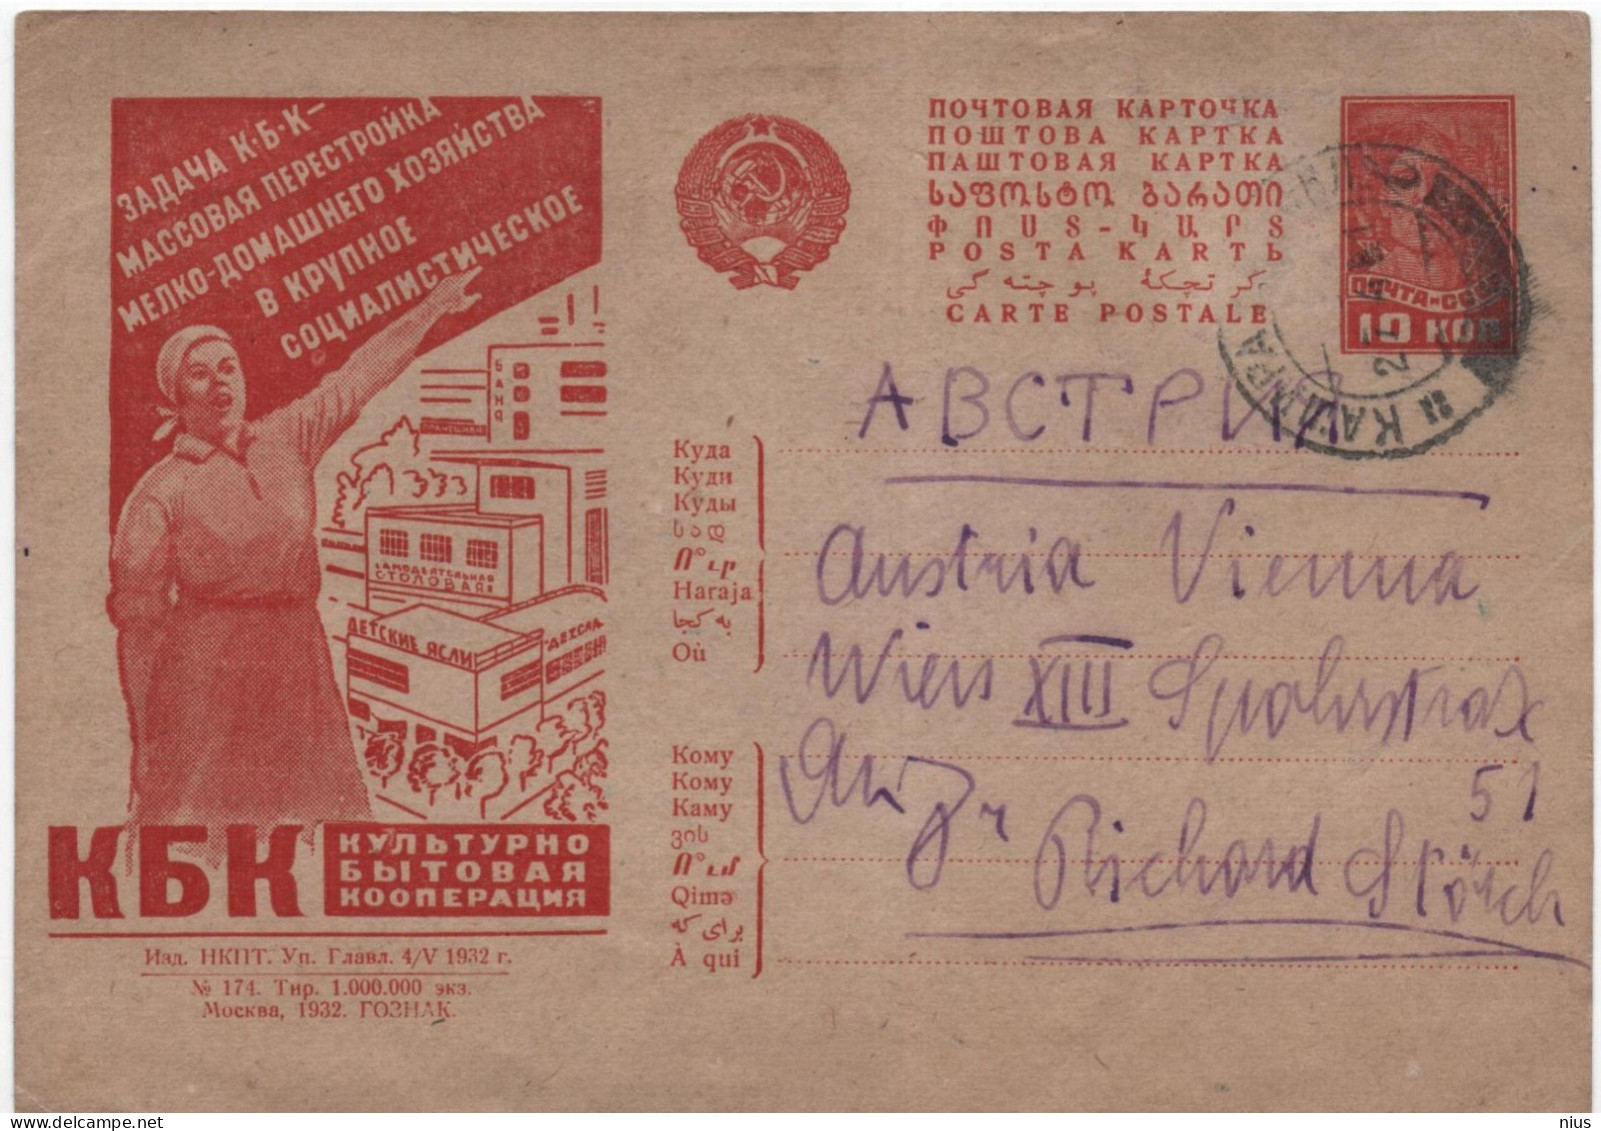 ЗАДАЧА К·Б·К—
МАССОВАЯ ПЕРЕСТРОЙКА
МЕЛКО-ДОМАШНЕГО ХОЗЯЙСТВА
В КРУПНОЕ
СОЦИАЛИСТИЧЕСКОЕ
БАНЯ
ПРАЧЕШНАЯ
САМОДЕЯТЕЛЬНАЯ
СТОЛОВАЯ
ДЕТСКИЕ ЯСЛИ
КБК
КУЛЬТУРНО
БЫТОВАЯ
КООПЕРАЦИЯ
Изд. НКПТ. Уп. Главл. 4/V 1932 г.
№ 174. Тир. 1.000.000 экз.
Москва, 1932. ГОЗНАК.
ПОЧТОВАЯ КАРТОЧКА
ПОШТОВА КАРТКА
ПАШТОВАЯ КАРТКА
ᲡᲐᲤᲝᲡᲢᲝ ᲑᲐᲠᲐᲗᲘ
ՓՈՍՏ-ԿԱՐՏ
POSTA KARTЬ
كرتچكهٔ پوچته كی
CARTE POSTALE
ПОЧТА СССР
10 КОП
КАШИРА
АВСТРИЯ
Куда
Куди
Куды
სად
Ո՞ւր
Haraja
به كجا
Où
Austria Vienna
Wien XIII
51
Richard
Кому
Кому
Каму
ვის
Ո՞ւմ
Qimə
برای كه
À qui
delcampe.net
nius